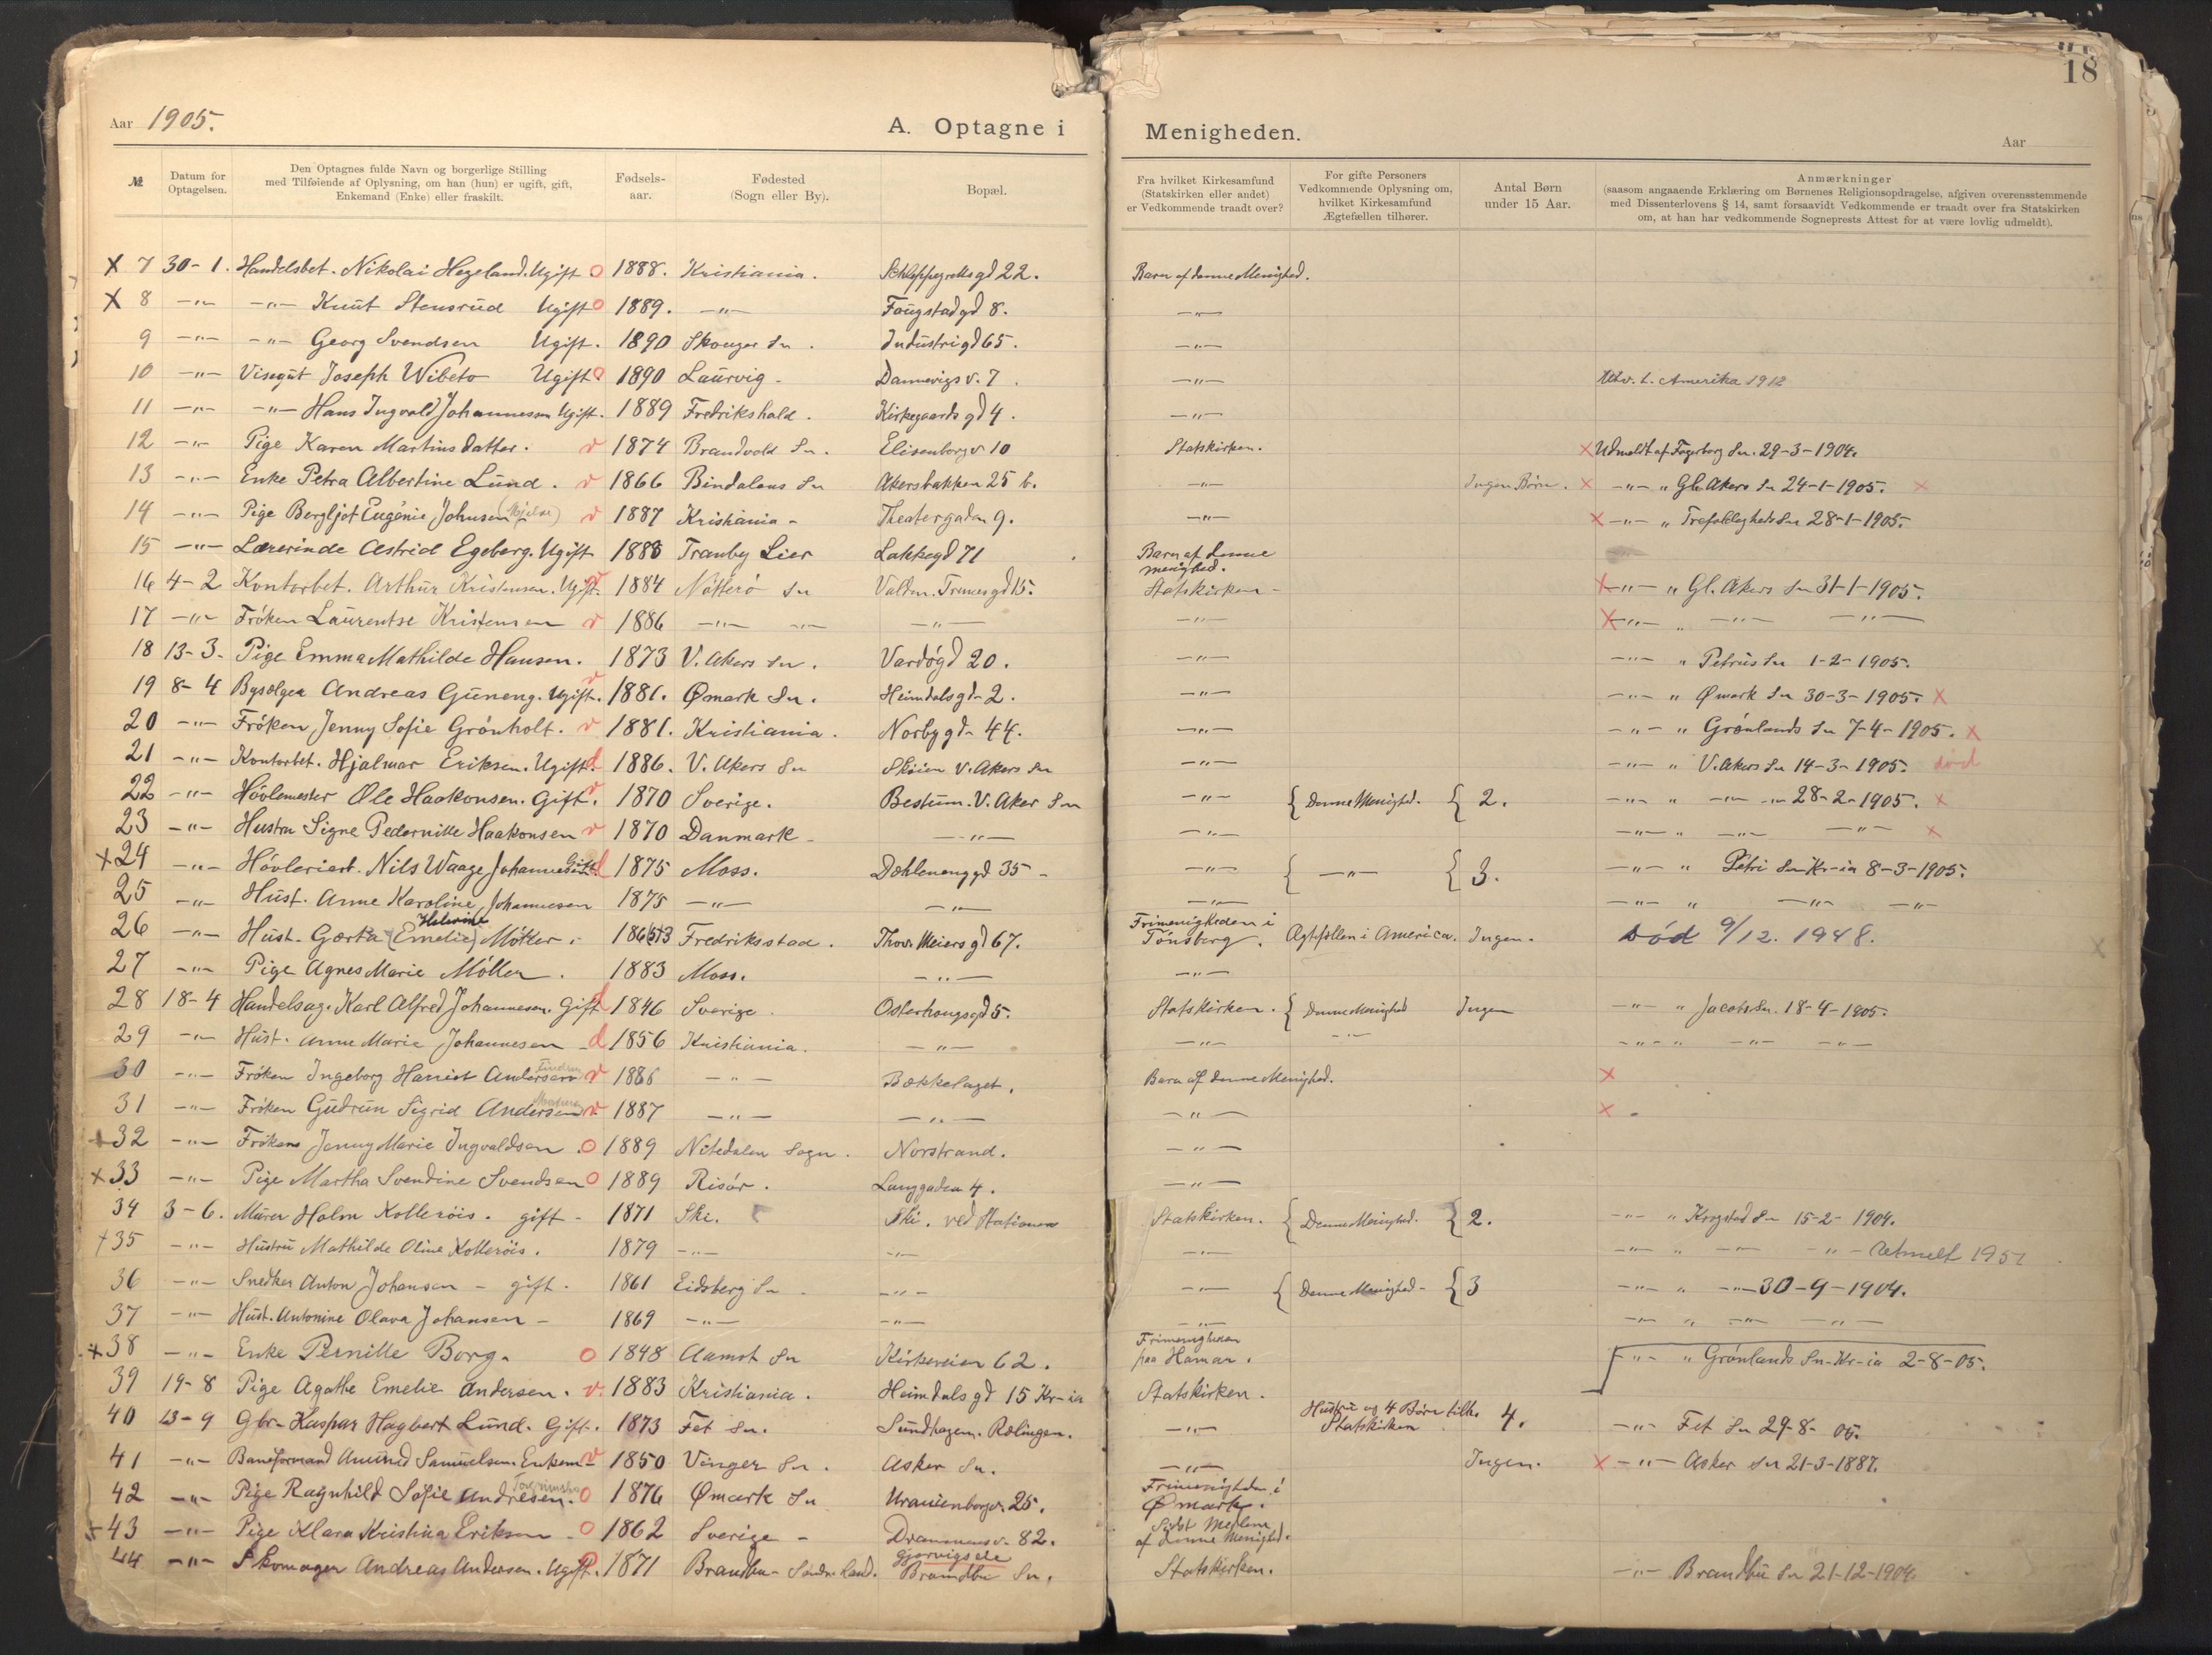 18
Aar 1905.
A. Optagne i Menigheden.
Aar
№
Datum for Optagelsen.
Den Optagnes fulde Navn og borgerlige Stilling med Tilføiende af Oplysning, om han (hun) er ugift, gift, Enkemand (Enke) eller fraskilt.
Fødsels-aar.
Fødested (Sogn eller By).
Bopæl.
Fra hvilket Kirkesamfund (Statskirken eller andet) er Vedkommende traadt over?
For gifte Personers Vedkommende Oplysning om, hvilket Kirkesamfund Ægtefællen tilhører.
Antal Børn under 15 Aar.
Anmærkninger (saasom angaaende Erklæring om Børnenes Religionsopdragelse, afgiven overensstemmende med Dissenterlovens § 14, samt forsaavidt Vedkommende er traadt over fra Statskirken om, at han har vedkommende Sogneprests Attest for at være lovlig udmeldt).
X 7 30-1. Handelsbet. Nikolai Hegeland. Ugift O 1888. Kristiania. Schleppegrellsgd 22. Barn af denne Menighed.
X 8 -"- -"- Knut Stensrud Ugift O 1889. -"- Fougstadgd 8. -"-
9 -"- -"- Georg Svendsen Ugift. 1890 Skouger Sn. Industrigd 65. -"-
10 -"- Visegut Joseph Wibeto Ugift O 1890 Laurvig. Dannevigsv. 7. -"- Utv. t. Amerika 1912
11 -"- -"- Hans Ingvald Johannessen Ugift. 1889 Fredrikshald. Kirkegaardsgd 4. -"-
12 -"- Pige Karen Martinsdatter. v 1874 Brandvold Sn. Elisenbergv 10 Statskirken. X Udmeldt af Fagerborg Sn. 29-3-1904.
13 -"- Enke Petra Albertine Lund. v 1866 Bindalens Sn Akersbakken 25 b. -"- Ingen Børn. X -"- " Gl. Akers Sn 24-1-1905. X
14 -"- Pige Bergljot Eugenie Johnsen v 1887 Kristiania - Theatergaden 9. -"- X -"- " Trefoldigheds Sn 28-1-1905.
15 -"- Lærerinde Astrid Egeberg. Ugift 1888 Tranby Lier Lakkegd 71 Barn af denne menighed.
16 4-2 Kontorbet. Arthur Kristensen. Ugift. v 1884 Nøtterö Sn Valdm. Tranesgd 15. Statskirken - X -"- " Gl. Akers Sn 31-1-1905.
17 -"- Fröken Laurentse Kristensen v 1886 -"- -"- -"- -"- X -"- " -"- -"-
18 13-3. Pige Emma Mathilde Hansen. 1873 V. Akers Sn. Vardøgd 20. -"- -"- " Petrus Sn 1-2-1905.
19 8-4 Bysælger Andreas Guneng. Ugift. v 1881. Ømark Sn. Heimdalsgd 2. -"- -"- " Ømark Sn 30-3-1905. X
20 -"- Fröken Jenny Sofie Grönholt. v 1881. Kristiania. Norbygd 44. -"- -"- " Grønlands Sn 7-4-1905. X
21 -"- Kontorbet. Hjalmar Eriksen. Ugift. d 1886. V. Akers Sn Skøien V. Akers Sn -"- -"- " V. Akers Sn 14-3-1905. død
22 -"- Høvlemester Ole Haakonsen. Gift. v 1870 Sverige. Bestum. V. Aker Sn -"- { Denne Menighed. { 2. -"- " -"- -"- 28-2-1905. X
23 -"- Hustru Signe Pedernille Haakonsen v 1870 Danmark - -"- -"- -"- " -"- -"- X
X 24 -"- Høvleriarb. Nils Waage Johannesen Gift d 1875 Moss. Dælenenggd 35 - -"- { -"- { 3. -"- " Petri Sn Kr-ia 8-3-1905.
25 -"- Hust. Anne Karoline Johannesen 1875 -"- -"- -"- -"- " -"- -"-
26 -"- Hust. Gærta (Emelie) Möller. Fredriksstad. Thorv. Meiersgd 67. Frimenigheden i Tönsberg. Ægtefællen i America. Ingen. Död 9/12. 1948.
27 -"- Pige Agnes Marie Möller. 1883 Moss. -"- -"-
28 18-4 Handelsag. Karl Alfred Johannesen. Gift d 1846 Sverige. Osterhausgd 5. Statskirken. { Denne Menighed Ingen -"- " Jacobs Sn. 18-4-1905.
29 -"- Hust. Anne Marie Johannesen - d 1856 Kristiania. -"- -"- -"- -"- " -"- -"-
30 -"- Fröken Ingeborg Harriet Andersen v 1886 -"- Bækkelaget. Barn af denne Menighed. X
31 -"- Fröken Gudrun Sigrid Andersen v 1887 -"- -"- -"- X -
+ 32 -"- Fröken Jenny Marie Ingvaldsen. O 1889 Nitedalen Sogn. Norstrand. -"-
X 33 -"- Pige Martha Svendine Svendsen O 1889 Risör. Langgaden 4. -"-
34 3-6. Murer Holm Kolleröis. gift - 1871 Ski. Ski. ved Stationen Statskirken. { Denne Menighed. { 2. -"- " Kraggstad Sn 15-2-1904.
+ 35 -"- Hustru Mathilde Oline Kolleröis. 1879 -"- -"- -"- -"- " -"- -"- - Utmelt 1951
36 -"- Snedker Anton Johansen - gift. 1861 Eidsberg Sn. -"- -"- { Denne Menighed - { 3 -"- " -"- 30-9-1904.
37 -"- Hust. Antonine Olava Johansen - 1869 -"- -"- -"- -"- " -"- -"-
X 38 -"- Enke Pernille Borg. O 1848 Aamot Sn Kirkeveien 62. Frimenigheden paa Hamar. -"- " Grønlands Sn-Kr-ia 2-8-05.
39 19-8 Pige Agathe Emelie Andersen. v. 1883 Kristiania. Heimdalsgd 15 Kr-ia Statskirken.
40 13-9 Gbr. Kaspar Hagbart Lund. Gift. 1873 Fet Sn. Sundhagen. Rælingen. -"- Hustru og 4 Börn tilh. Statskirken 4. -"- Fet Sn 29-8-05.
41 -"- Baneformand Amund Samuelsen. Enkem- v 1850 Vinger Sn. Asker Sn. -"- Ingen. X -"- Asker Sn 21-3-1887.
42 -"- Pige Ragnhild Sofie Andresen. O 1876 Ømark Sn Uranienborgv. 25. Frimenigheden i Ømark.
+ 43 -"- Pige Klara Kristina Eriksen - O 1862 Sverige - Drammensv. 82. Sidst Medlem af denne Menighed.
44 -"- Skomager Andreas Andersen. Ugift. 1871 Brandbu - Søndre Land. Brandbu Sn. Statskirken. -"- Brandbu Sn 21-12-1904.